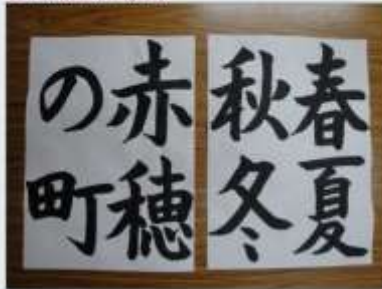 春夏
秋冬
赤穂
の町